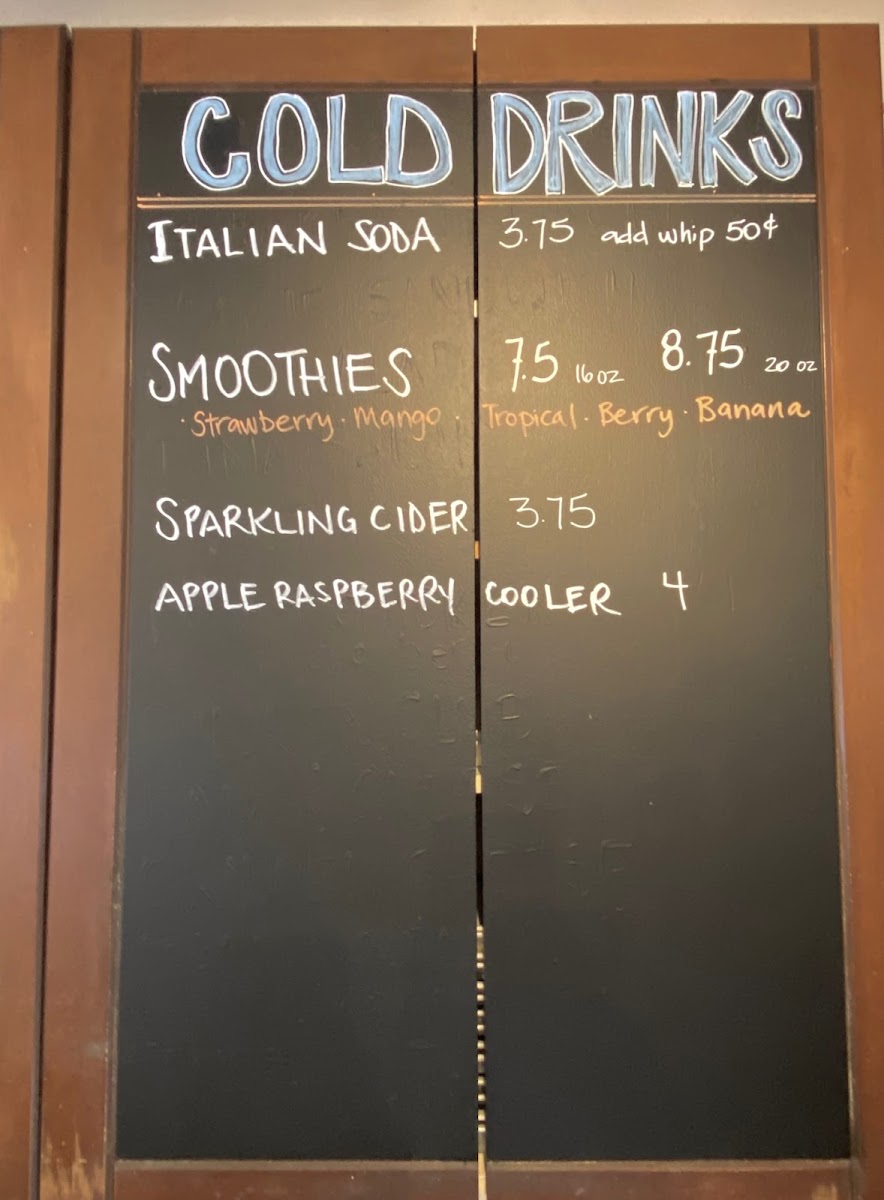 COLD DRINKS
ITALIAN SODA 3.75 add whip 50¢
SMOOTHIES 7.5 16 oz 8.75 20 oz
· Strawberry · Mango · Tropical · Berry · Banana
SPARKLING CIDER 3.75
APPLE RASPBERRY COOLER 4